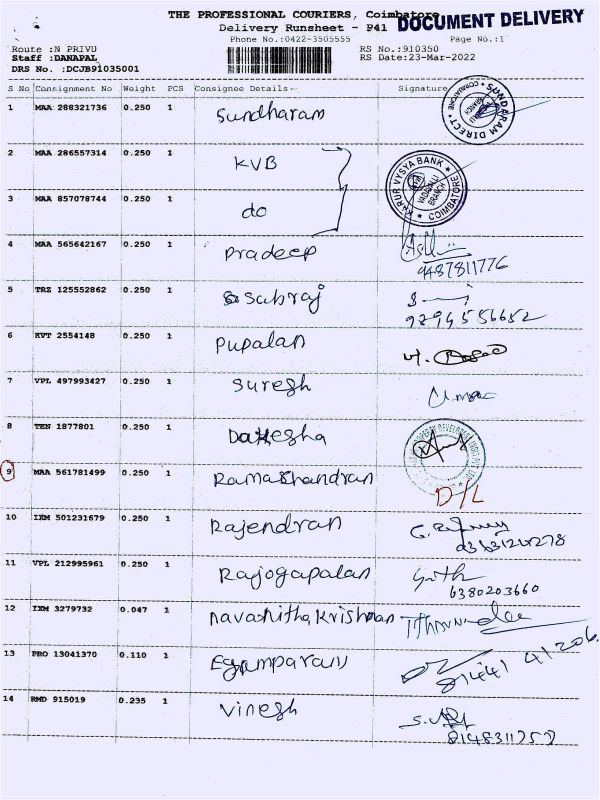 THE PROFESSIONAL COURIERS, Coimbatore
DOCUMENT DELIVERY
Delivery Runsheet - P41
Phone No.:0422-3505555 Page No.:1
Route :N PRIVU RS No.:910350
Staff :DANAPAL RS Date:23-Mar-2022
DRS No. :DCJB91035001
S No Consignment No Weight PCS Consignee Details Signature
1 MAA 288321736 0.250 1 Sundharam
SUNDARAM DIRECT COIMBATORE
2 MAA 286557314 0.250 1 KVB
KARUR VYSYA BANK VADAVALLI BRANCH COIMBATORE
3 MAA 857078744 0.250 1 do
4 MAA 565642167 0.250 1 Pradeep
9487811776
5 TRZ 125552862 0.250 1 Sabraj
9894556652
6 KVT 2554148 0.250 1 Pupalan
7 VPL 497993427 0.250 1 Suresh
8 TEN 1877801 0.250 1
9 MAA 561781499 0.250 1 Ramachandran D/L
10 IXM 501231679 0.250 1 Rajendran
11 VPL 212995961 0.250 1 Rajogapalan
6380203660
12 IXM 3279732 0.047 1 navanitha Krishnan
13 PRO 13041370 0.110 1
81441 41206
14 RMD 915019 0.235 1 Vinesh